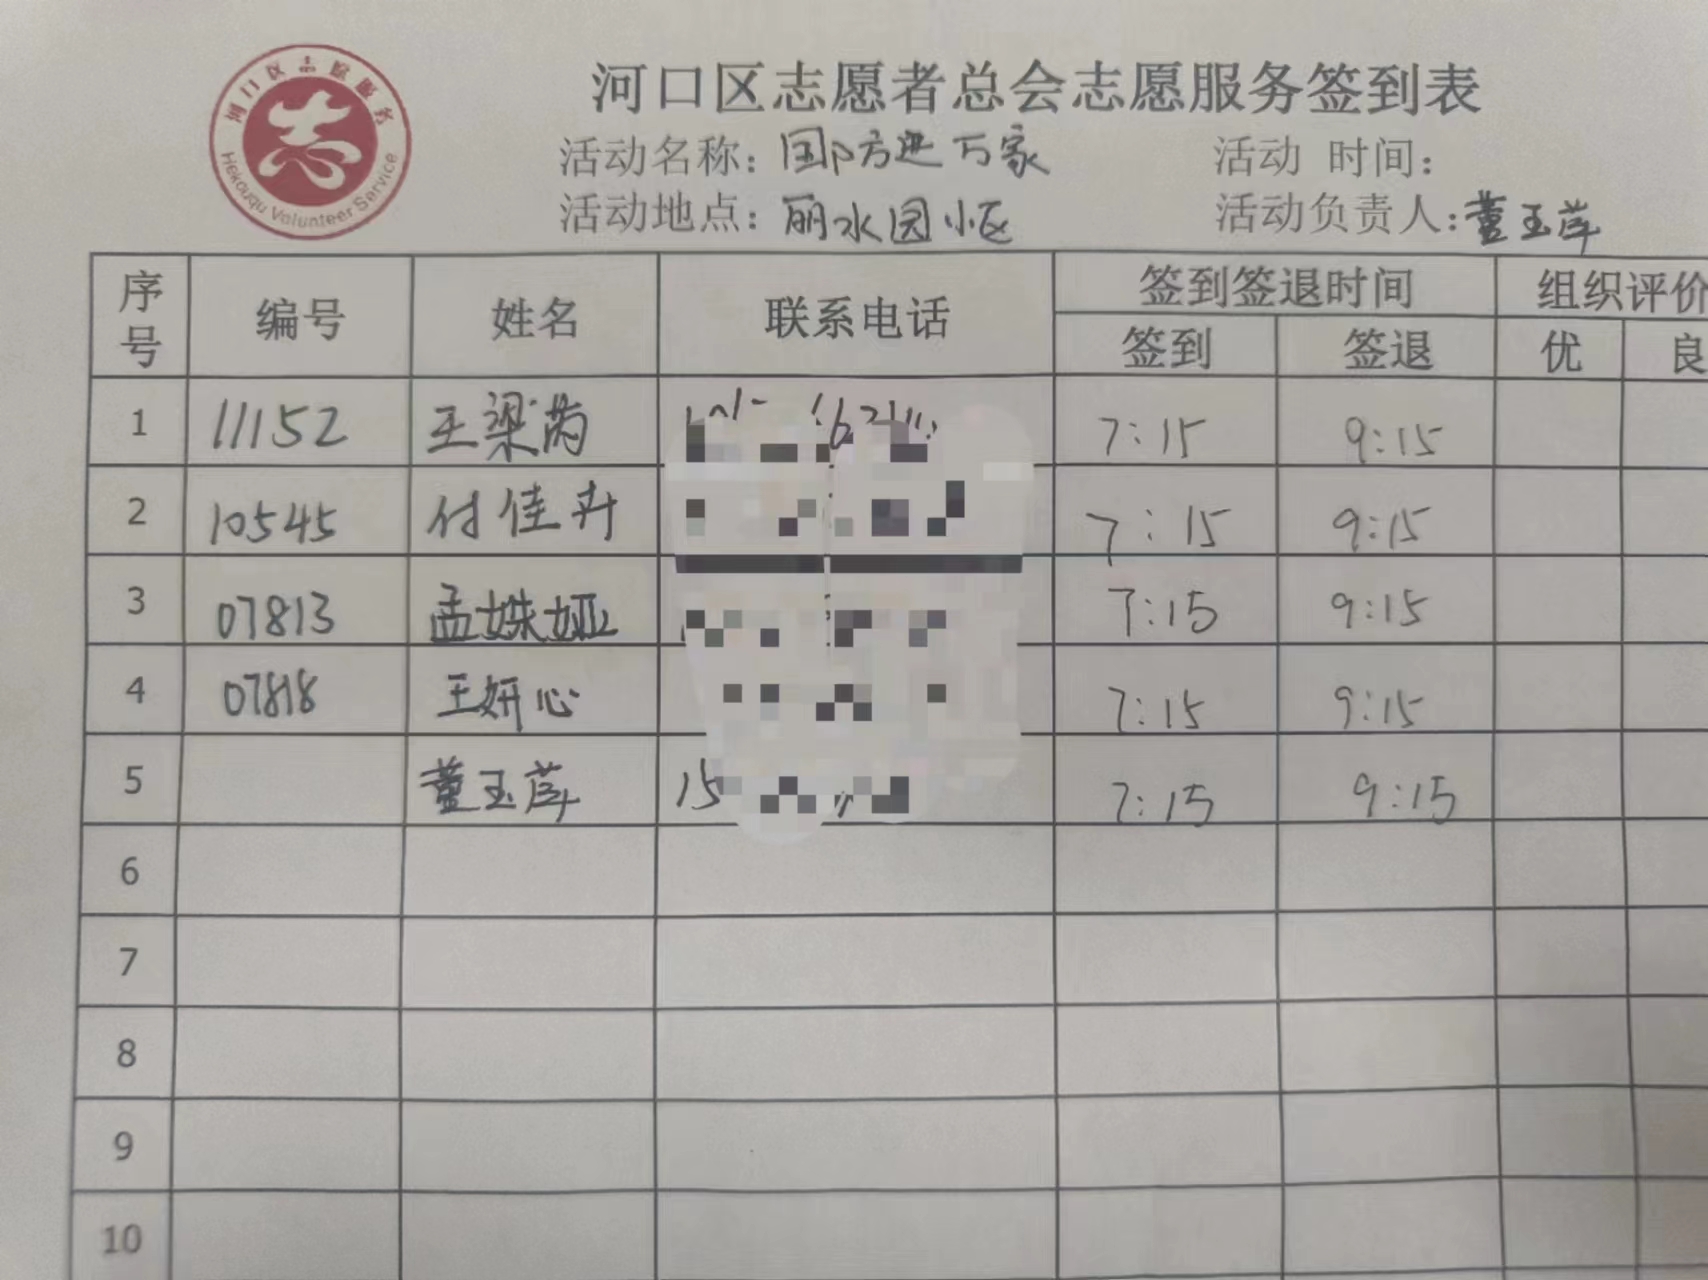 河口区志愿服务
志
Hekouqu Volunteer Service
河口区志愿者总会志愿服务签到表
活动名称：国防进万家 活动 时间：
活动地点：丽水园小区 活动负责人：董玉萍
序号 编号 姓名 联系电话 签到签退时间 组织评价
签到 签退 优 良
1 11152 王梁芮 7:15 9:15
2 10545 付佳卉 7:15 9:15
3 07813 孟姝娅 7:15 9:15
4 07818 王妍心 7:15 9:15
5 董玉萍 15 7:15 9:15
6
7
8
9
10